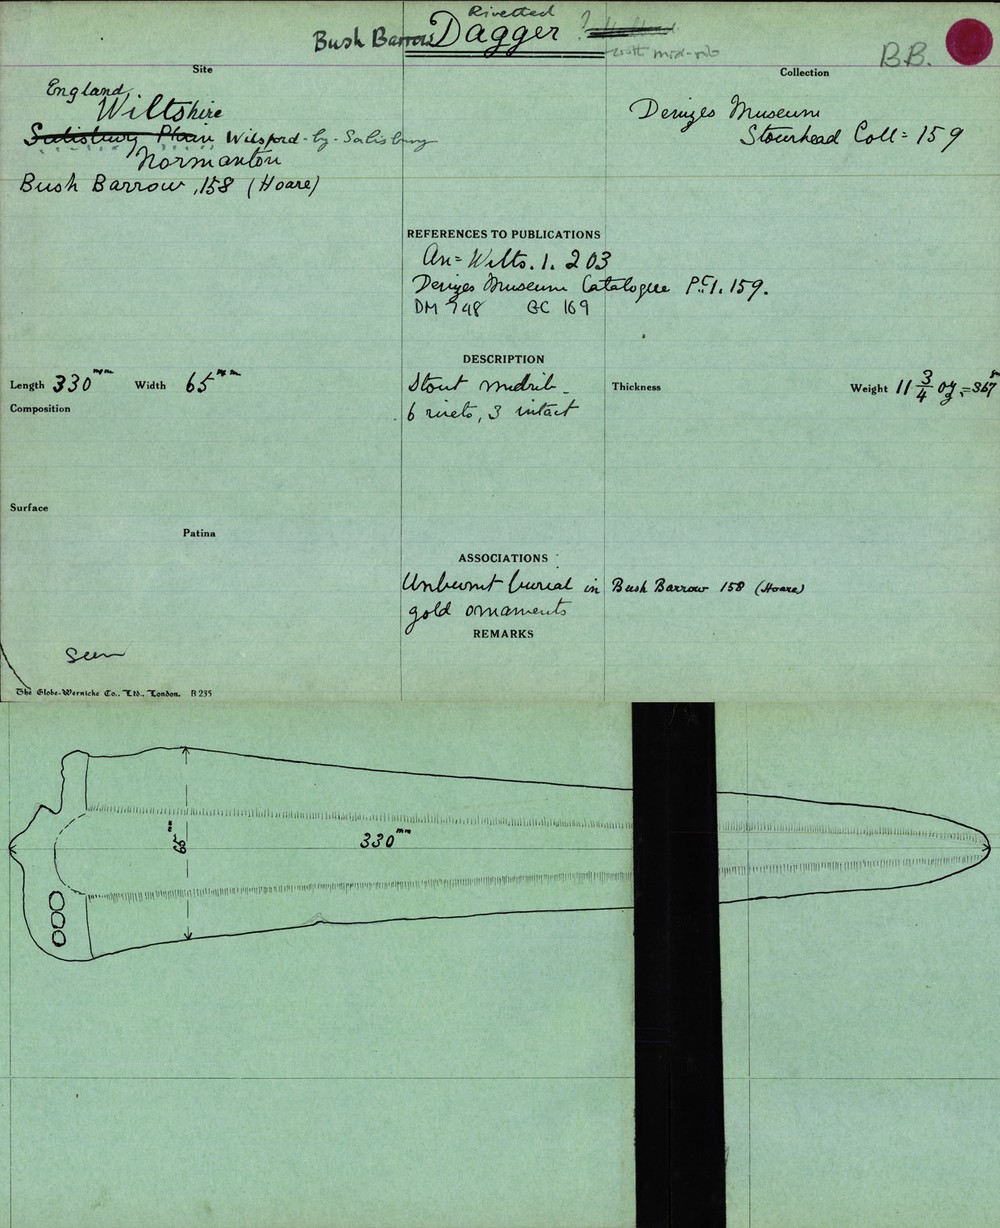 Rivetted
Bush Barrow Dagger ?
with mid-rib
B.B.
Site
Collection
England
Wiltshire
Salisbury Plain Wilsford-by-Salisbury
Normanton
Bush Barrow, 158 (Hoare)
Devizes Museum
Stourhead Coll: 159
REFERENCES TO PUBLICATIONS
An: Wilts. 1. 203
Devizes Museum Catalogue Pt. 1. 159.
DM 748 GC 169
DESCRIPTION
Length 330 mm Width 65 mm
Stout midrib
Thickness
Weight 11 3/4 oz. = 367 g
Composition
6 rivets, 3 intact
Surface
Patina
ASSOCIATIONS
Unburnt burial in Bush Barrow 158 (Hoare)
gold ornaments
REMARKS
seen
The Globe-Wernicke Co., Ltd., London. B 235
65 mm
330 mm